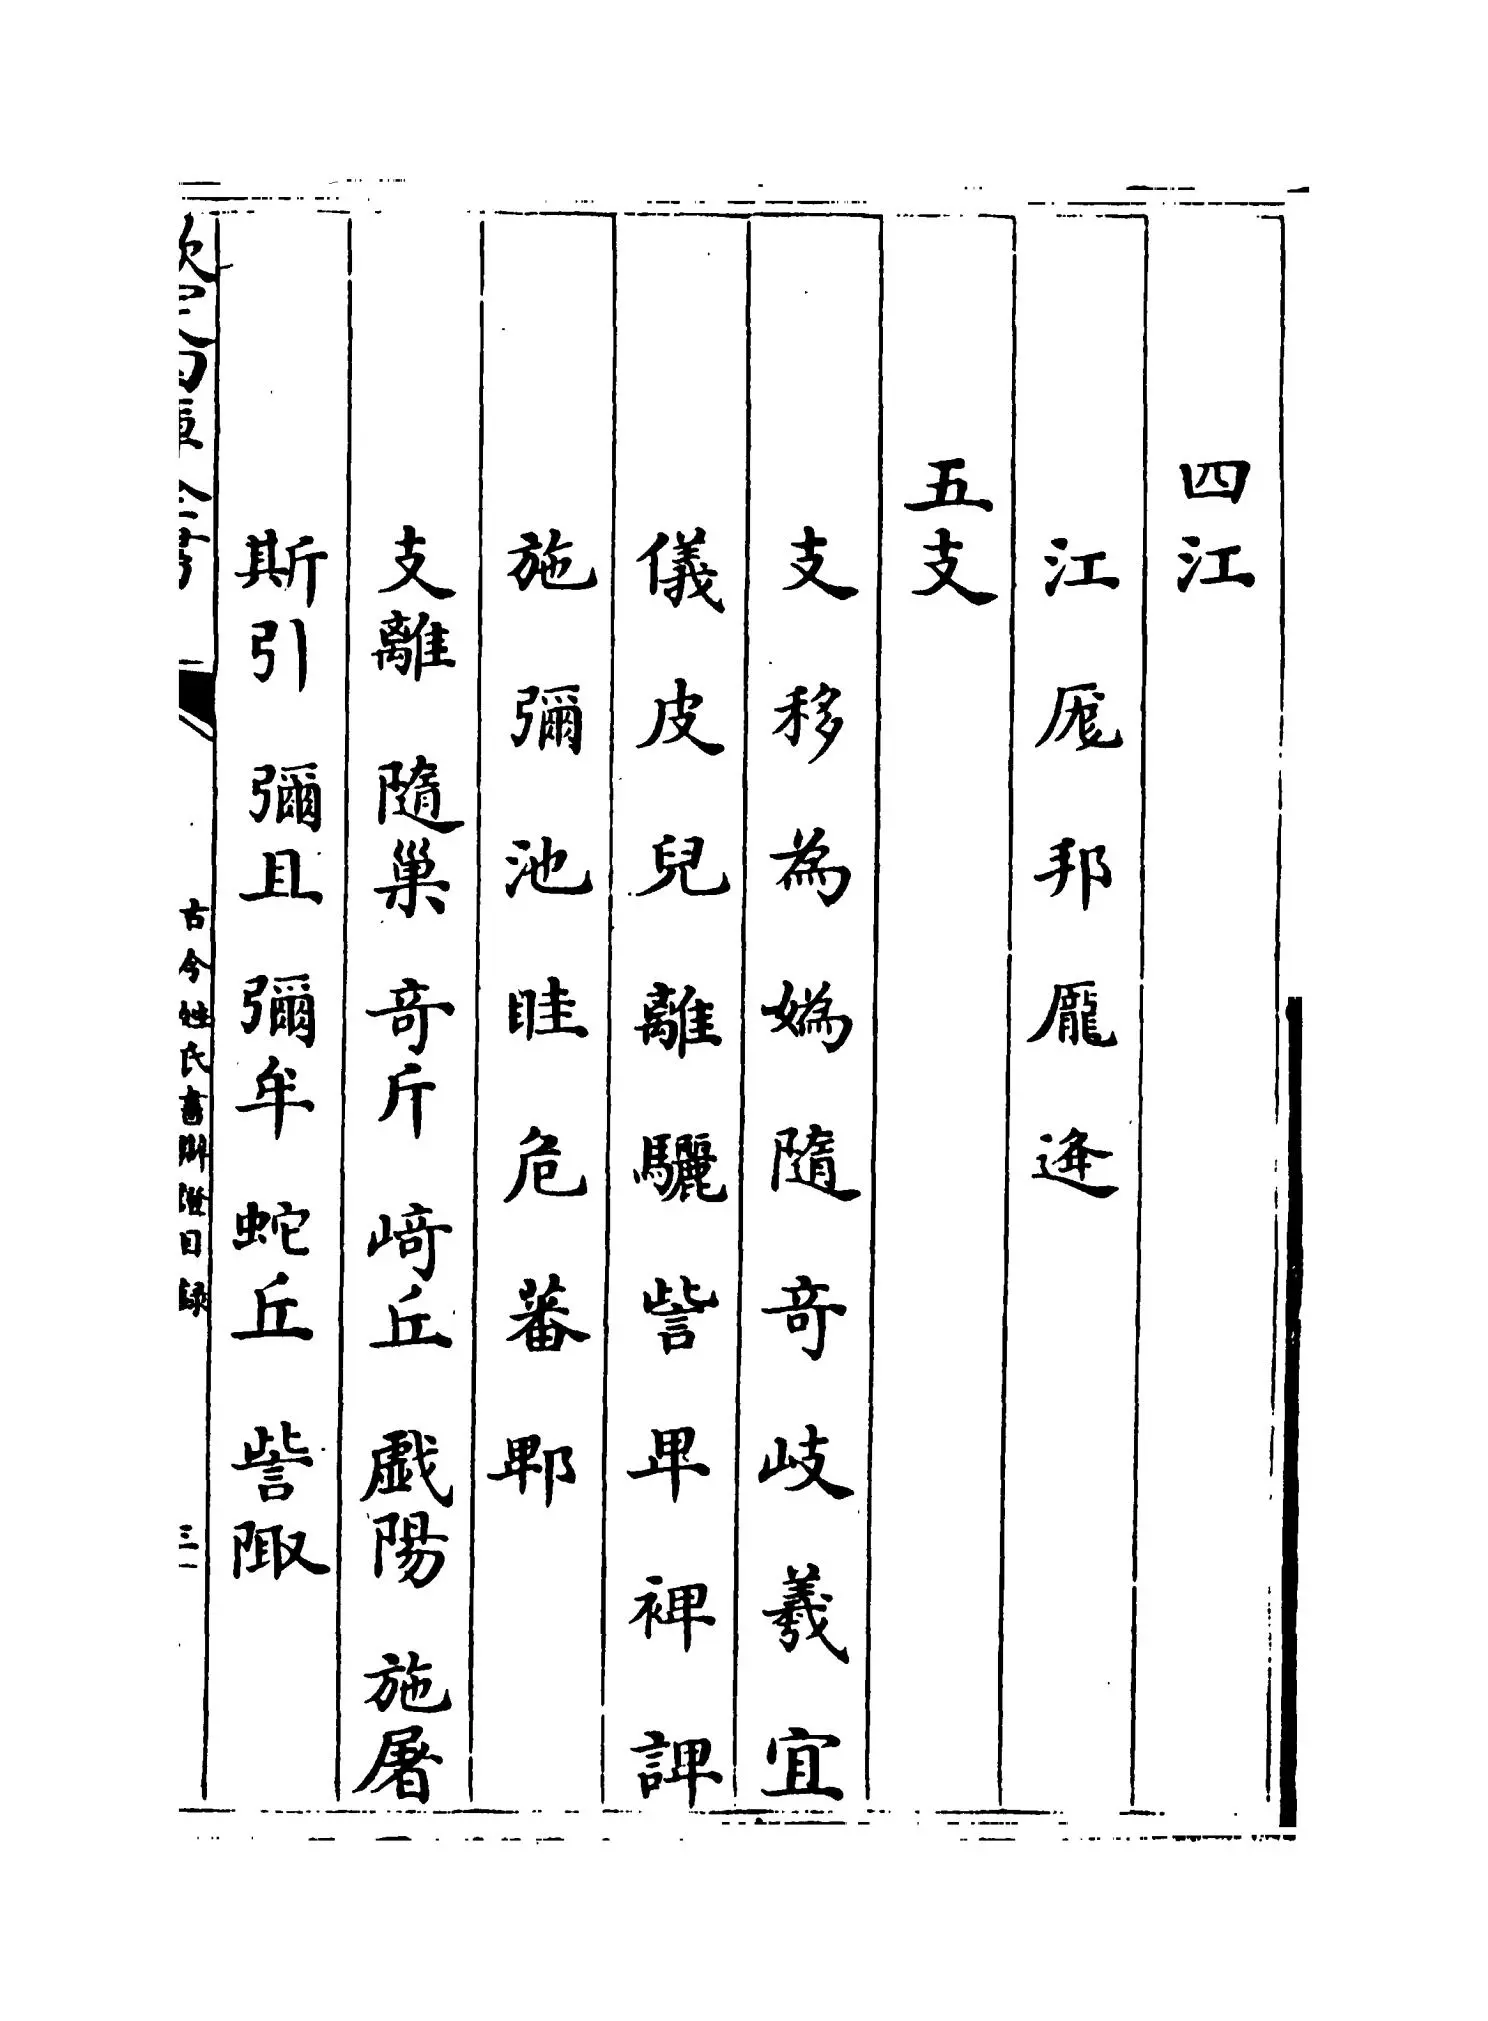 四江
江 厖 邦 龎 逄
五支
支 移 為 媯 隨 竒 岐 羲 宜
儀 皮 兒 離 驪 訾 卑 裨 諀
施 彌 池 眭 危 蕃 郫
支離 隨巢 竒斤 崎丘 戯陽 施屠
斯引 彌且 彌牟 蛇丘 訾陬
欽定四庫全書
古今姓氏書辯證目録